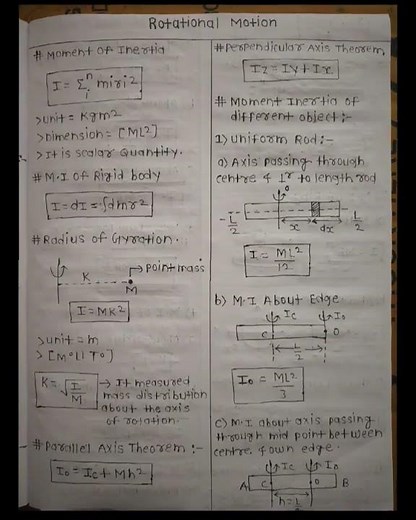 Rotational Motion
# Moment of Inertia
I = Σᵢⁿ miri²
> unit = Kgm²
> Dimension = [ML²]
> It is scalar Quantity.
# M.I of Rigid body
I = dI = ∫dmr²
# Radius of Gyration.
K
point mass
M
I = MK²
> unit = m
> [M⁰L¹T⁰]
K = √(I/M) → It measured
mass distribution
about the axis
of rotation.
# Parallel Axis Theorem :-
I₀ = Ic + Mh²
# Perpendicular Axis Theorem,
Iz = Iy + Ix
# Moment Inertia of
different object:-
1) Uniform Rod:-
a) Axis passing through
centre & ⊥ʳ to length rod
-L/2
x
dx
L/2
I = ML²/12
b) M.I About Edge
Ic
I₀
C
O
L/2
I₀ = ML²/3
c) M.I about axis passing
through mid point between
centre & own edge.
Ic
I₀
A
C
O
B